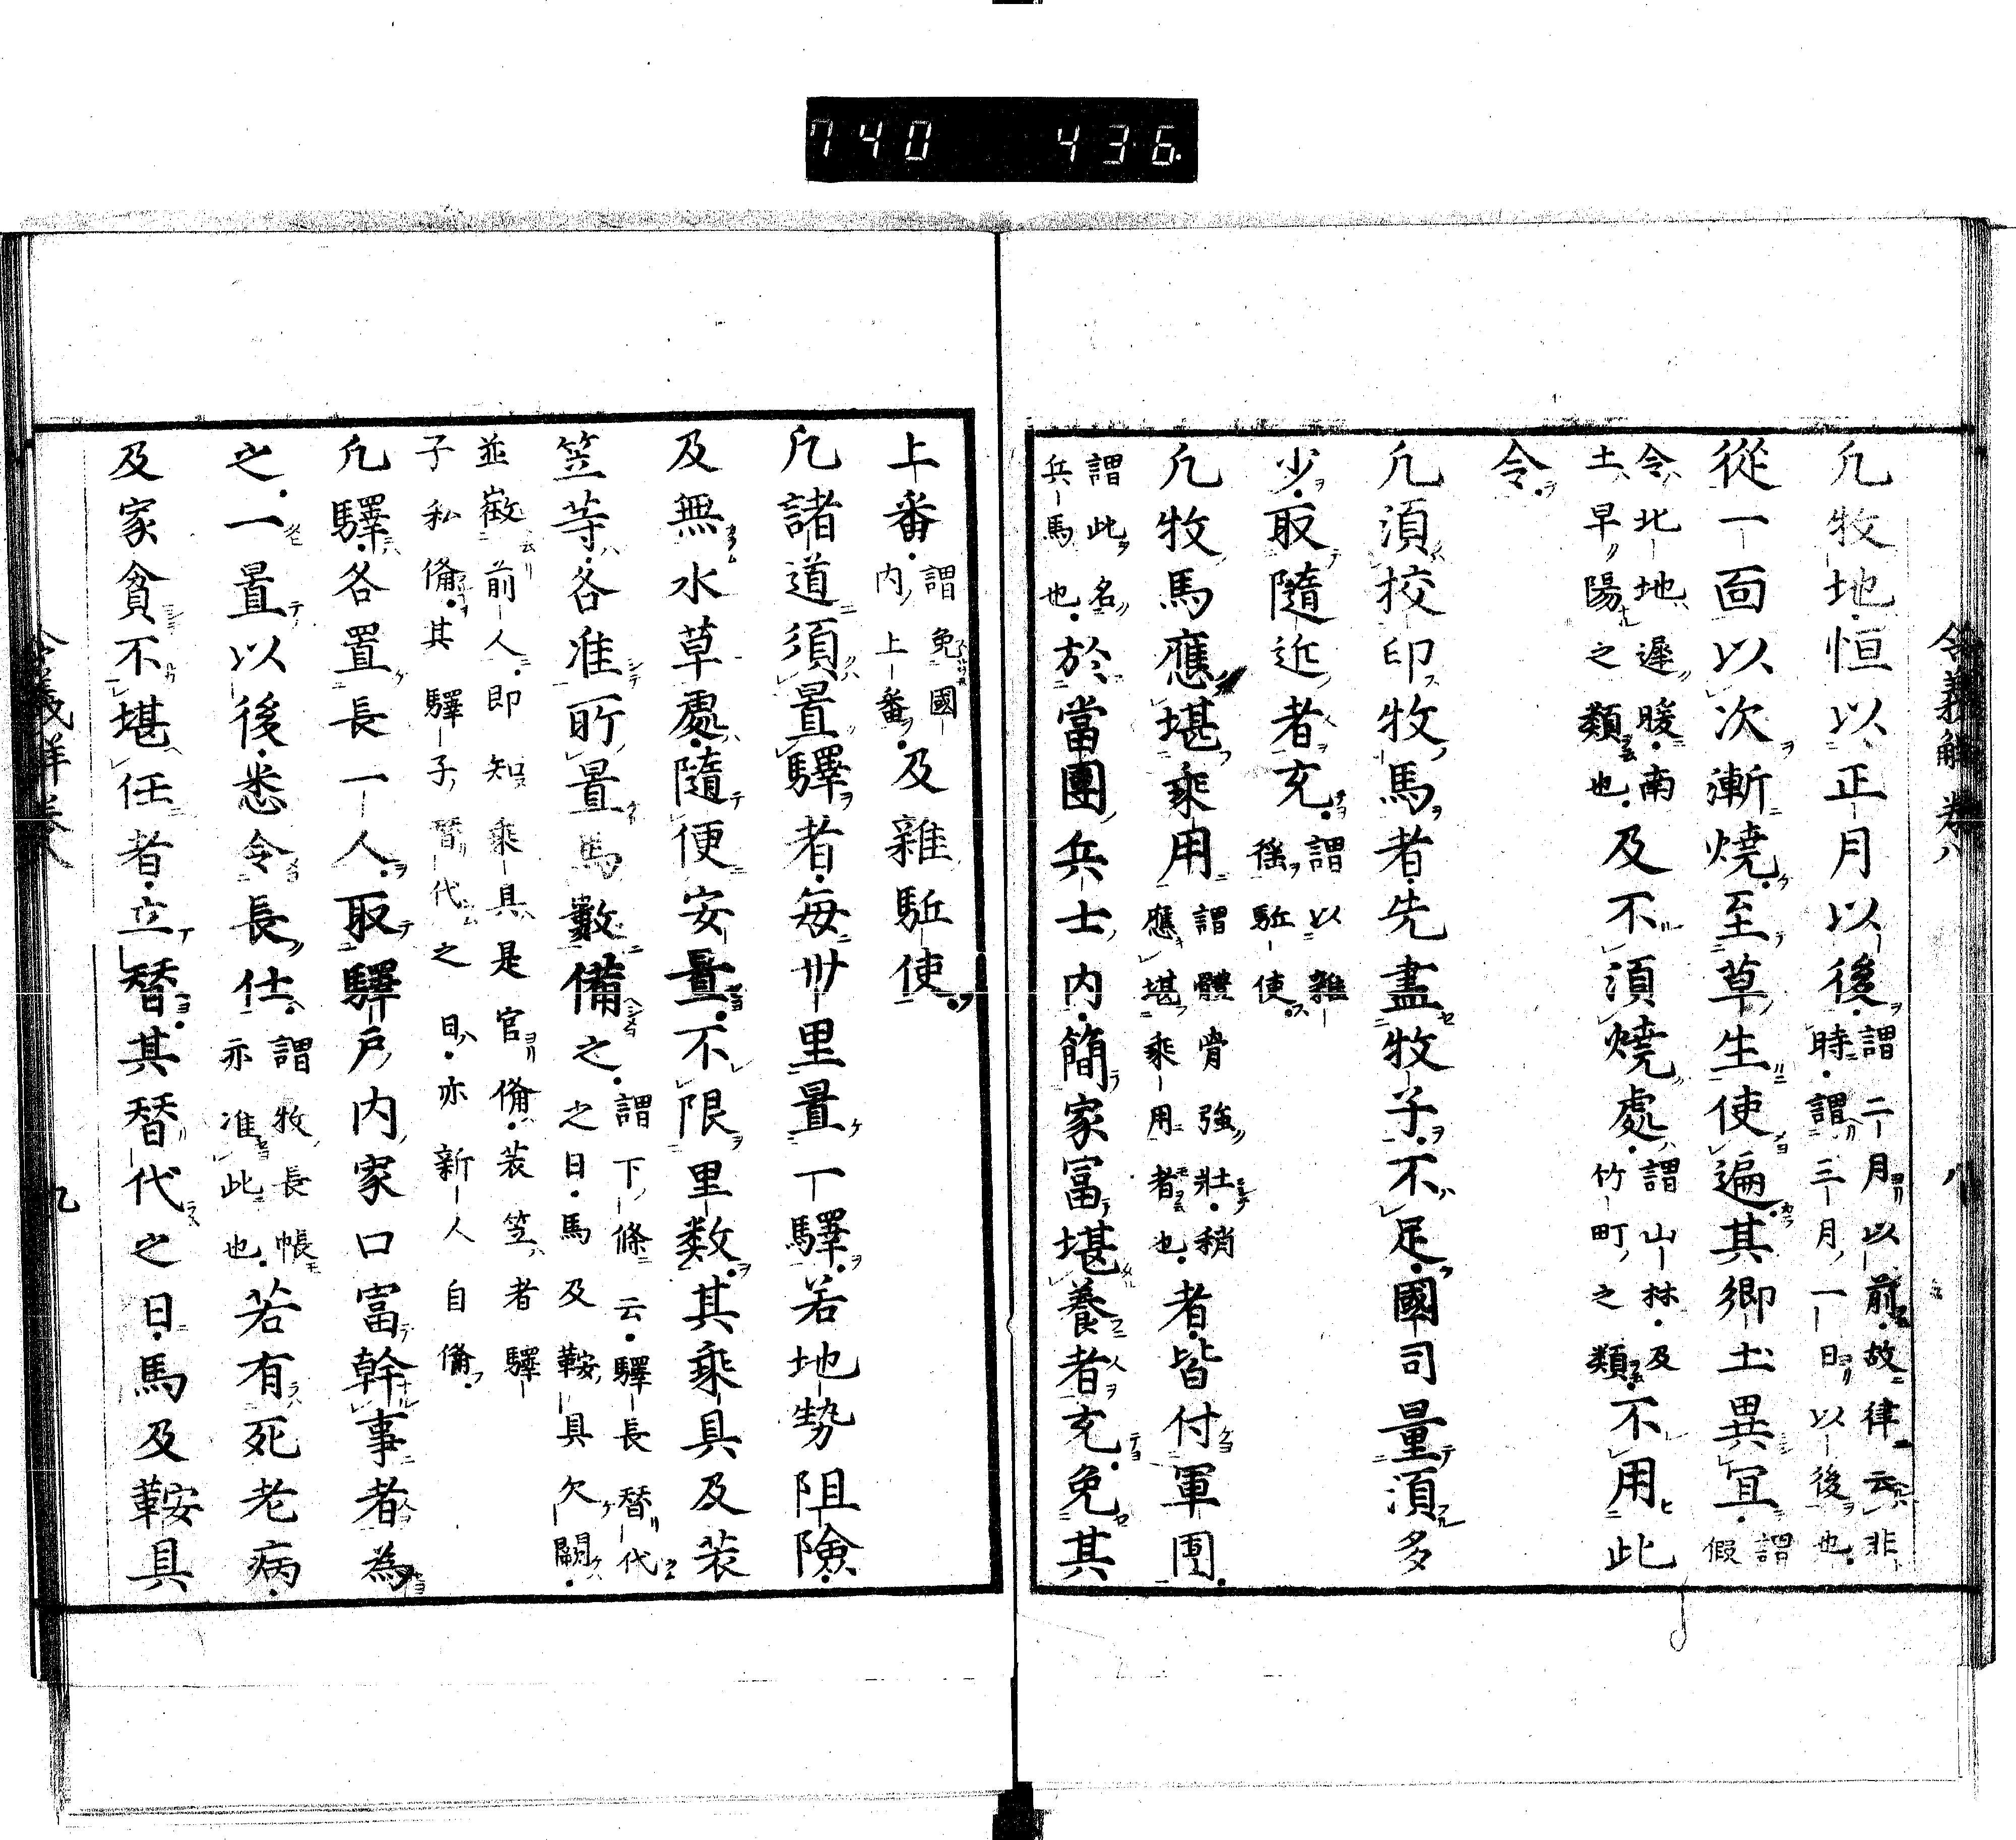 740 436
令義解卷八 八
凡牧地恒以正月以後謂二月以前故律云非
時謂三月一日以後也
從一面以次漸燒至草生使遍其鄉土異宜謂
假
令北地遲暖南
土早陽之類也及不須燒處謂山林及
竹町之類不用此
令
凡須挍印牧馬者先盡牧子不足國司量須多
少取隨近者充謂以雜
徭駈使
凡牧馬應堪乘用謂體骨強壯稍
應堪乘用者也者皆付軍團
謂此名
兵馬也於當團兵士內簡家富堪養者充免其
上番謂免國
內上番及雜駈使
凡諸道須置驛者每卅里置一驛若地勢阻險
及無水草處隨便安置不限里数其乘具及蓑
笠等各准所置馬數備之謂下條云驛長替代
之日馬及鞍具欠闕
並徵前人即知乘具是官備蓑笠者驛
子私備其驛子替代之日亦新人自備
凡驛各置長一人取驛戶內家口富幹事者為
之一置以後悉令長仕謂牧長帳
亦准此也若有死老病
及家貧不堪任者立替其替代之日馬及鞍具
令義解卷八 九